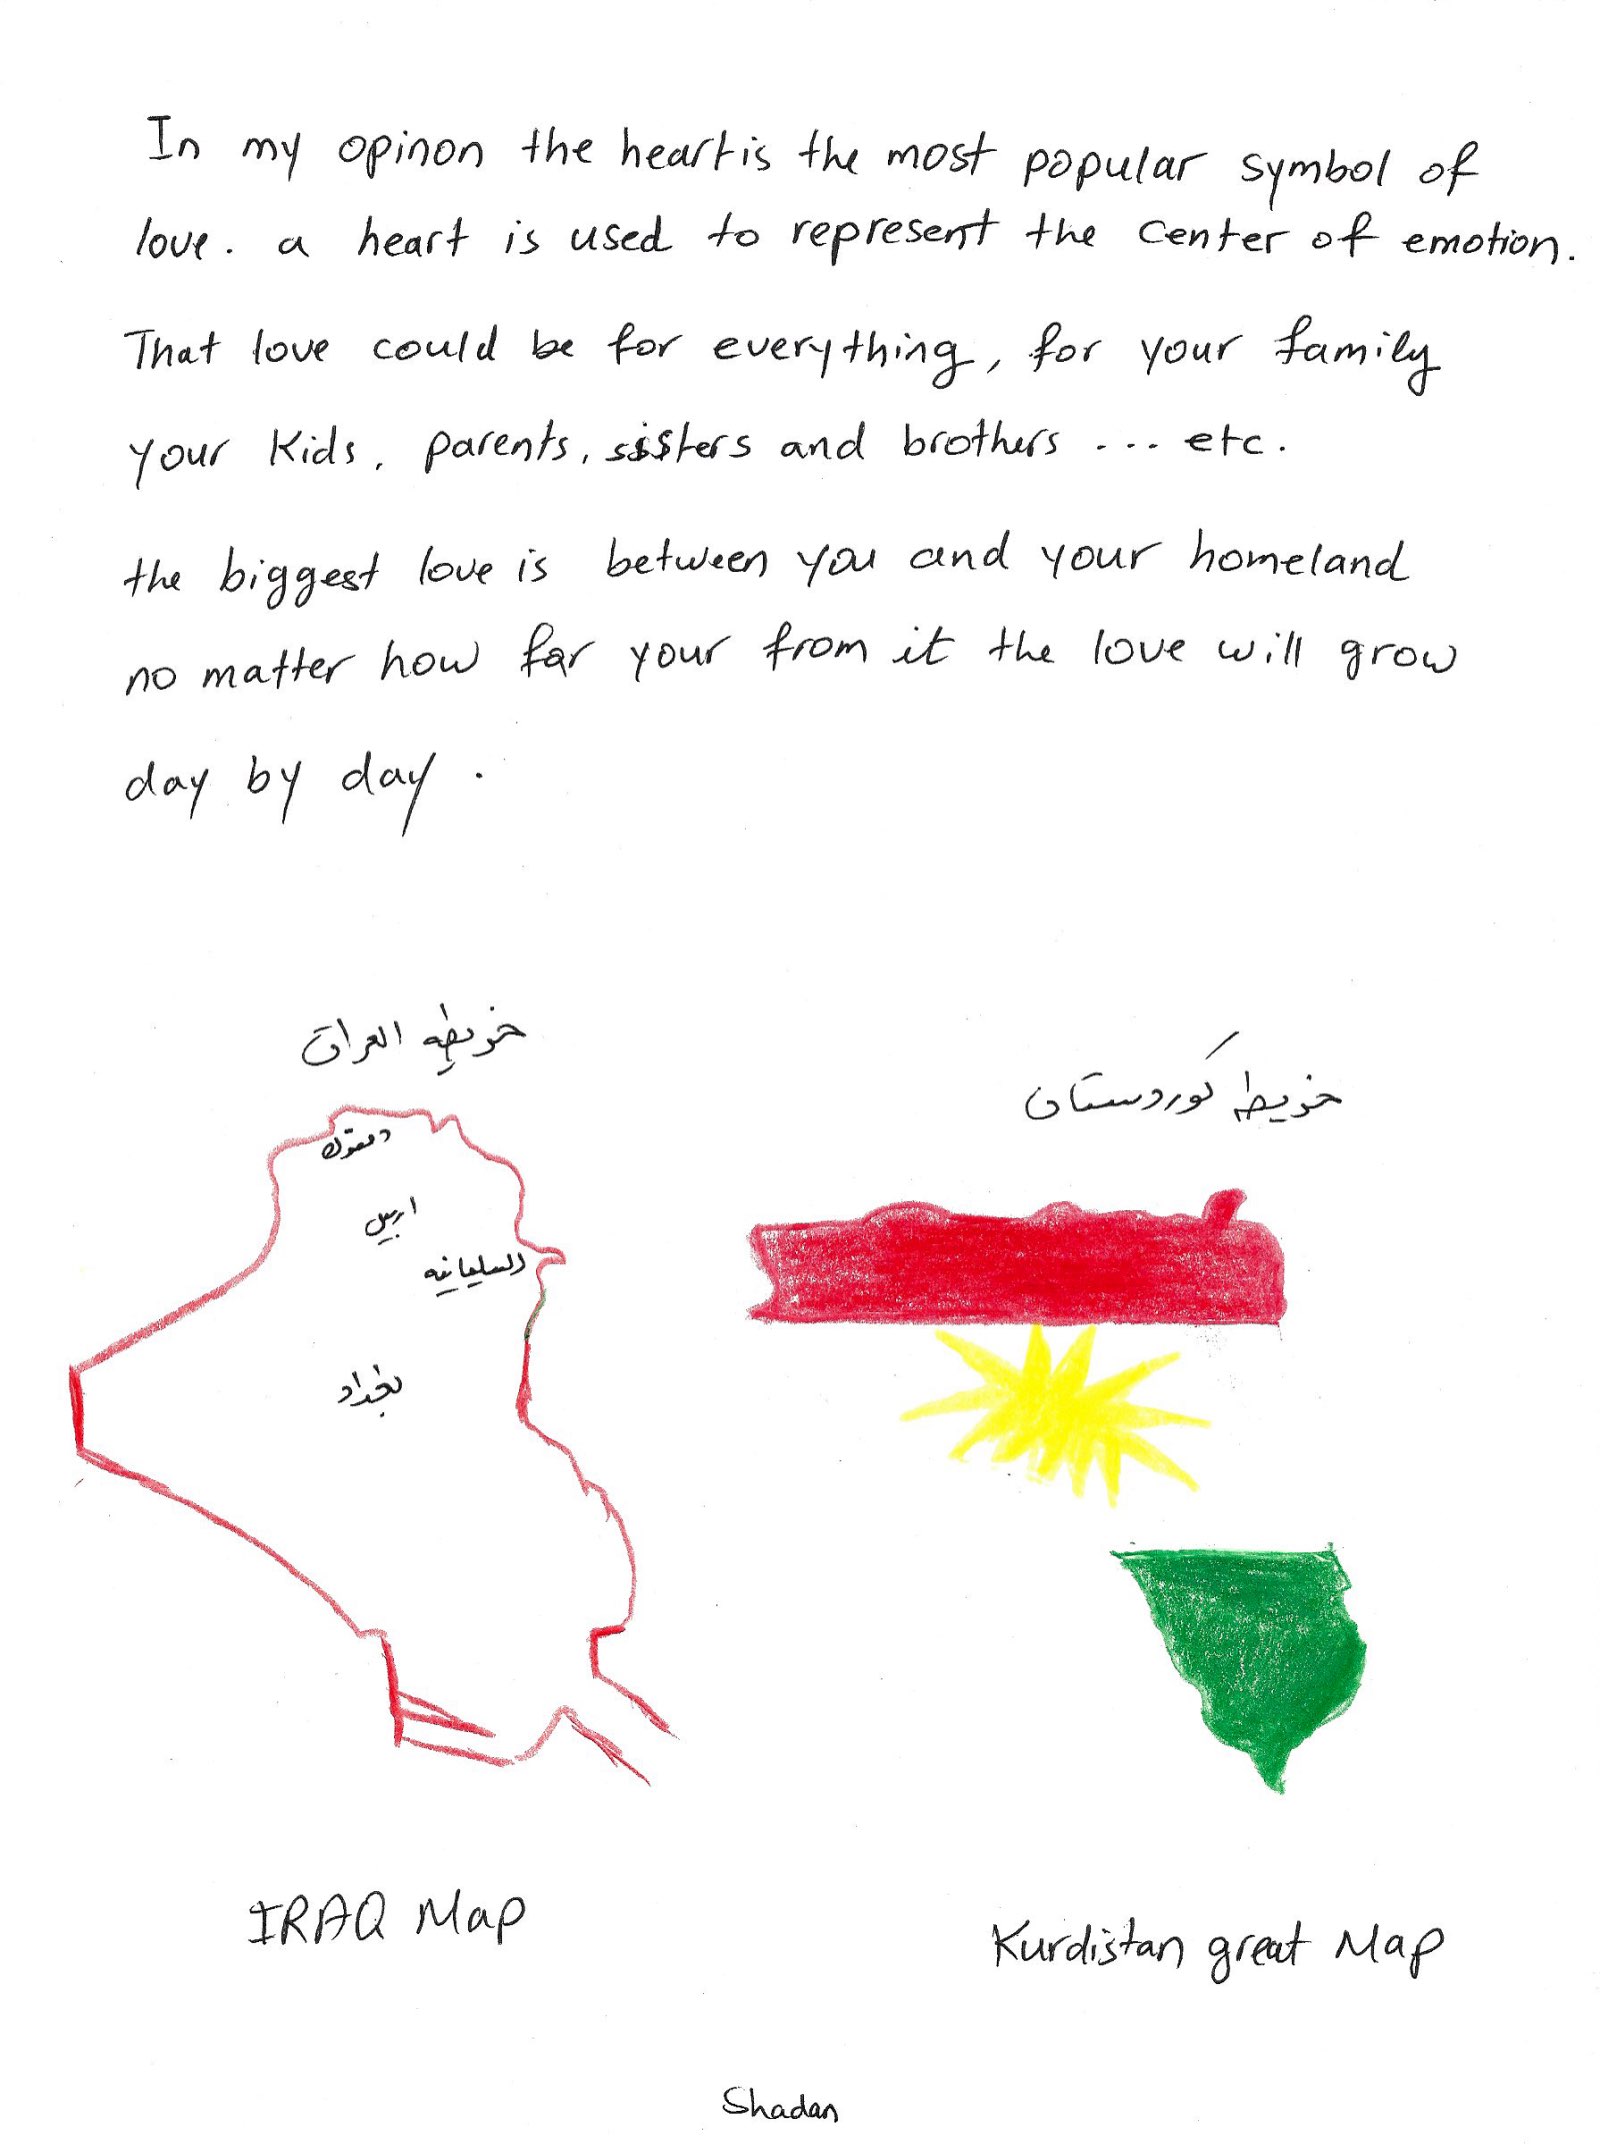 In my opinon the heart is the most popular symbol of
love. a heart is used to represent the center of emotion.
That love could be for everything, for your family
your Kids, parents, sisters and brothers ... etc.
the biggest love is between you and your homeland
no matter how far your from it the love will grow
day by day.
خريطه العراق
خريطه كوردستان
دهوك
اربيل
السليمانيه
بغداد
IRAQ Map
Kurdistan great Map
Shadan